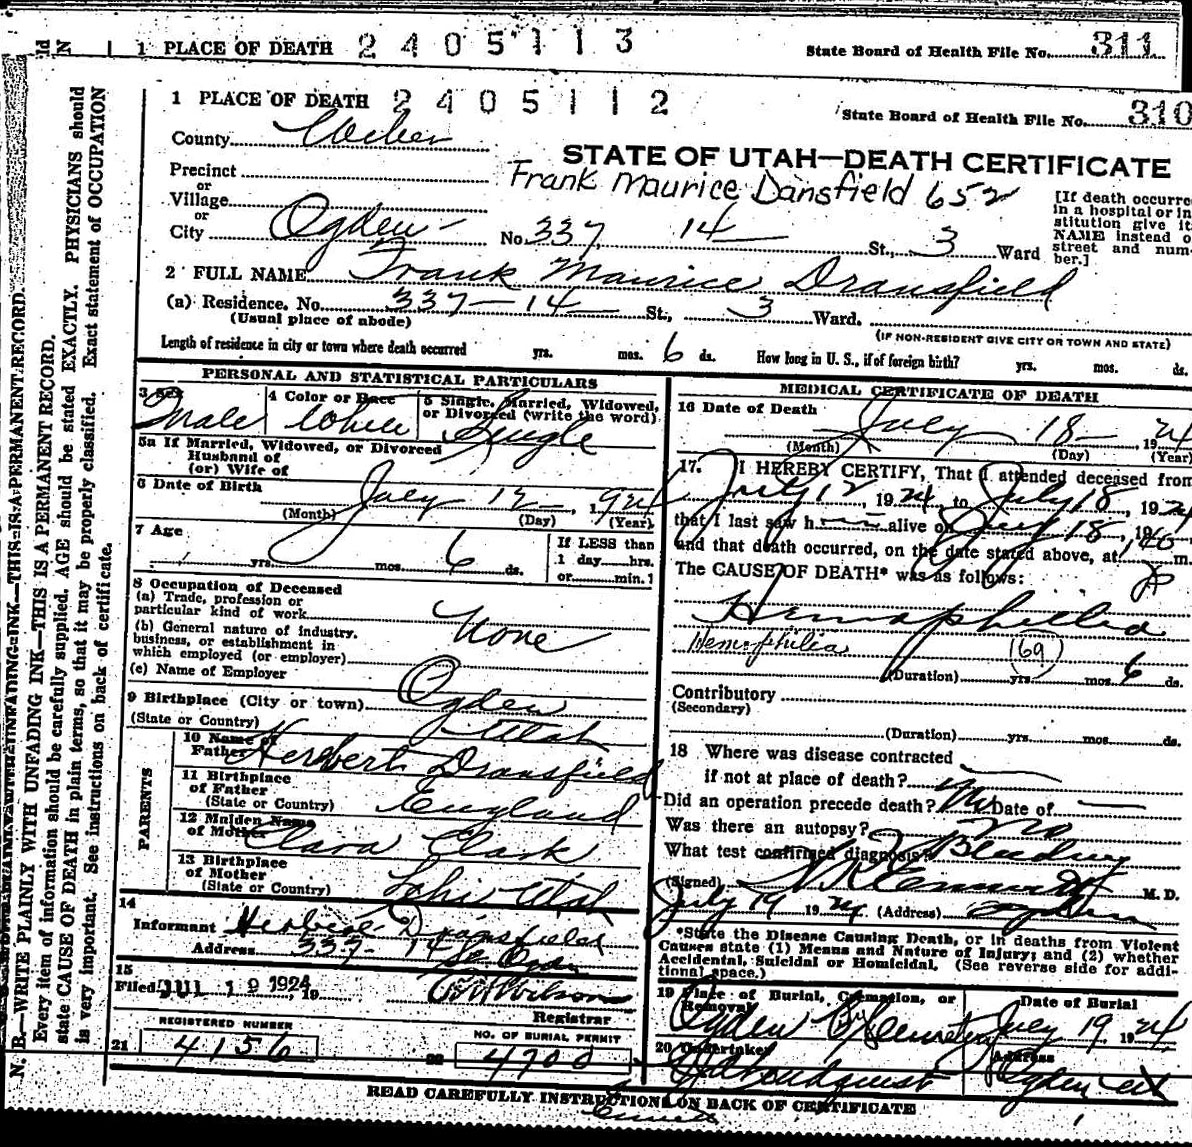 1 PLACE OF DEATH 2405113 State Board of Health File No. 311
1 PLACE OF DEATH 2405112 State Board of Health File No. 310
County Weber
STATE OF UTAH—DEATH CERTIFICATE
Precinct
or
Village
or
City Ogden No. 337 14 St., 3 Ward
Frank Maurice Dansfield 652
[If death occurre
in a hospital or in
stitution give it
NAME instead o
street and num-
ber.]
2 FULL NAME Frank Maurice Dransfield
(a) Residence, No. 337—14 St., 3 Ward.
(Usual place of abode) (IF NON-RESIDENT GIVE CITY OR TOWN AND STATE)
Length of residence in city or town where death occurred yrs. mos. 6 ds. How long in U. S., if of foreign birth? yrs. mos. ds.
PERSONAL AND STATISTICAL PARTICULARS
3 Sex Male
4 Color or Race White
5 Single, Married, Widowed,
or Divorced (write the word)
Single
5a If Married, Widowed, or Divorced
Husband of
(or) Wife of
6 Date of Birth July 12 1924
(Month) (Day) (Year)
7 Age
yrs. mos. 6 ds.
If LESS than
1 day hrs.
or min.1
8 Occupation of Deceased
(a) Trade, profession or
particular kind of work
(b) General nature of industry,
business, or establishment in
which employed (or employer)
None
(c) Name of Employer
9 Birthplace (City or town) Ogden
(State or Country) Utah
PARENTS
10 Name of
Father Herbert Dransfield
11 Birthplace
of Father
(State or Country) England
12 Maiden Name
of Mother Clara Clark
13 Birthplace
of Mother
(State or Country) Lehi Utah
14
Informant Herbert Dransfield
Address 337- 14 St. Ogden
15
Filed JUL 19 1924, 19 Wilson
Registrar
REGISTERED NUMBER
21 4156
NO. OF BURIAL PERMIT
22 4700
MEDICAL CERTIFICATE OF DEATH
16 Date of Death July 18— , 1924
(Month) (Day) (Year)
17. I HEREBY CERTIFY, That I attended deceased from
July 12, 1924, to July 18, 1924
that I last saw h alive on July 18, 19
and that death occurred, on the date stated above, at 1,40 m.
The CAUSE OF DEATH* was as follows: P
Hemaphilia
Hemophilia (169)
(Duration) yrs. mos. 6 ds.
Contributory
(Secondary)
(Duration) yrs. mos. ds.
18 Where was disease contracted
if not at place of death?
Did an operation precede death? No Date of
Was there an autopsy? no
What test confirmed diagnosis? Bleeding
(Signed) M. D.
July 19 1924 (Address) Ogden
*State the Disease Causing Death, or in deaths from Violent
Causes state (1) Means and Nature of Injury; and (2) whether
Accidental, Suicidal or Homicidal. (See reverse side for addi-
tional space.)
19 Place of Burial, Cremation, or
Removal
Ogden City Cemetery
Date of Burial
July 19, 1924
20 Undertaker
Lindquist
Address
Ogden Ut
READ CAREFULLY INSTRUCTIONS ON BACK OF CERTIFICATE
N. B.—WRITE PLAINLY WITH UNFADING INK—THIS IS A PERMANENT RECORD.
Every item of information should be carefully supplied. AGE should be stated EXACTLY. PHYSICIANS should
state CAUSE OF DEATH in plain terms, so that it may be properly classified. Exact statement of OCCUPATION
is very important. See instructions on back of certificate.